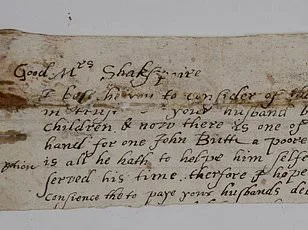 Good Mrs Shakspaire
to consider of the
in trust your husband b
children & now there is one of
hand for one John Butt a poore
ption is all he hath to helpe him selfe
served his time, therfore I hope
consience the to paye your husbands de